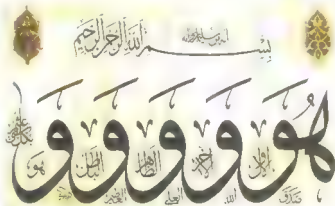 بسم الله الرحمن الرحيم
هو الاول و الآخر و الظاهر و الباطن و هو بكل شئ عليم
صدق الله العلي العظيم